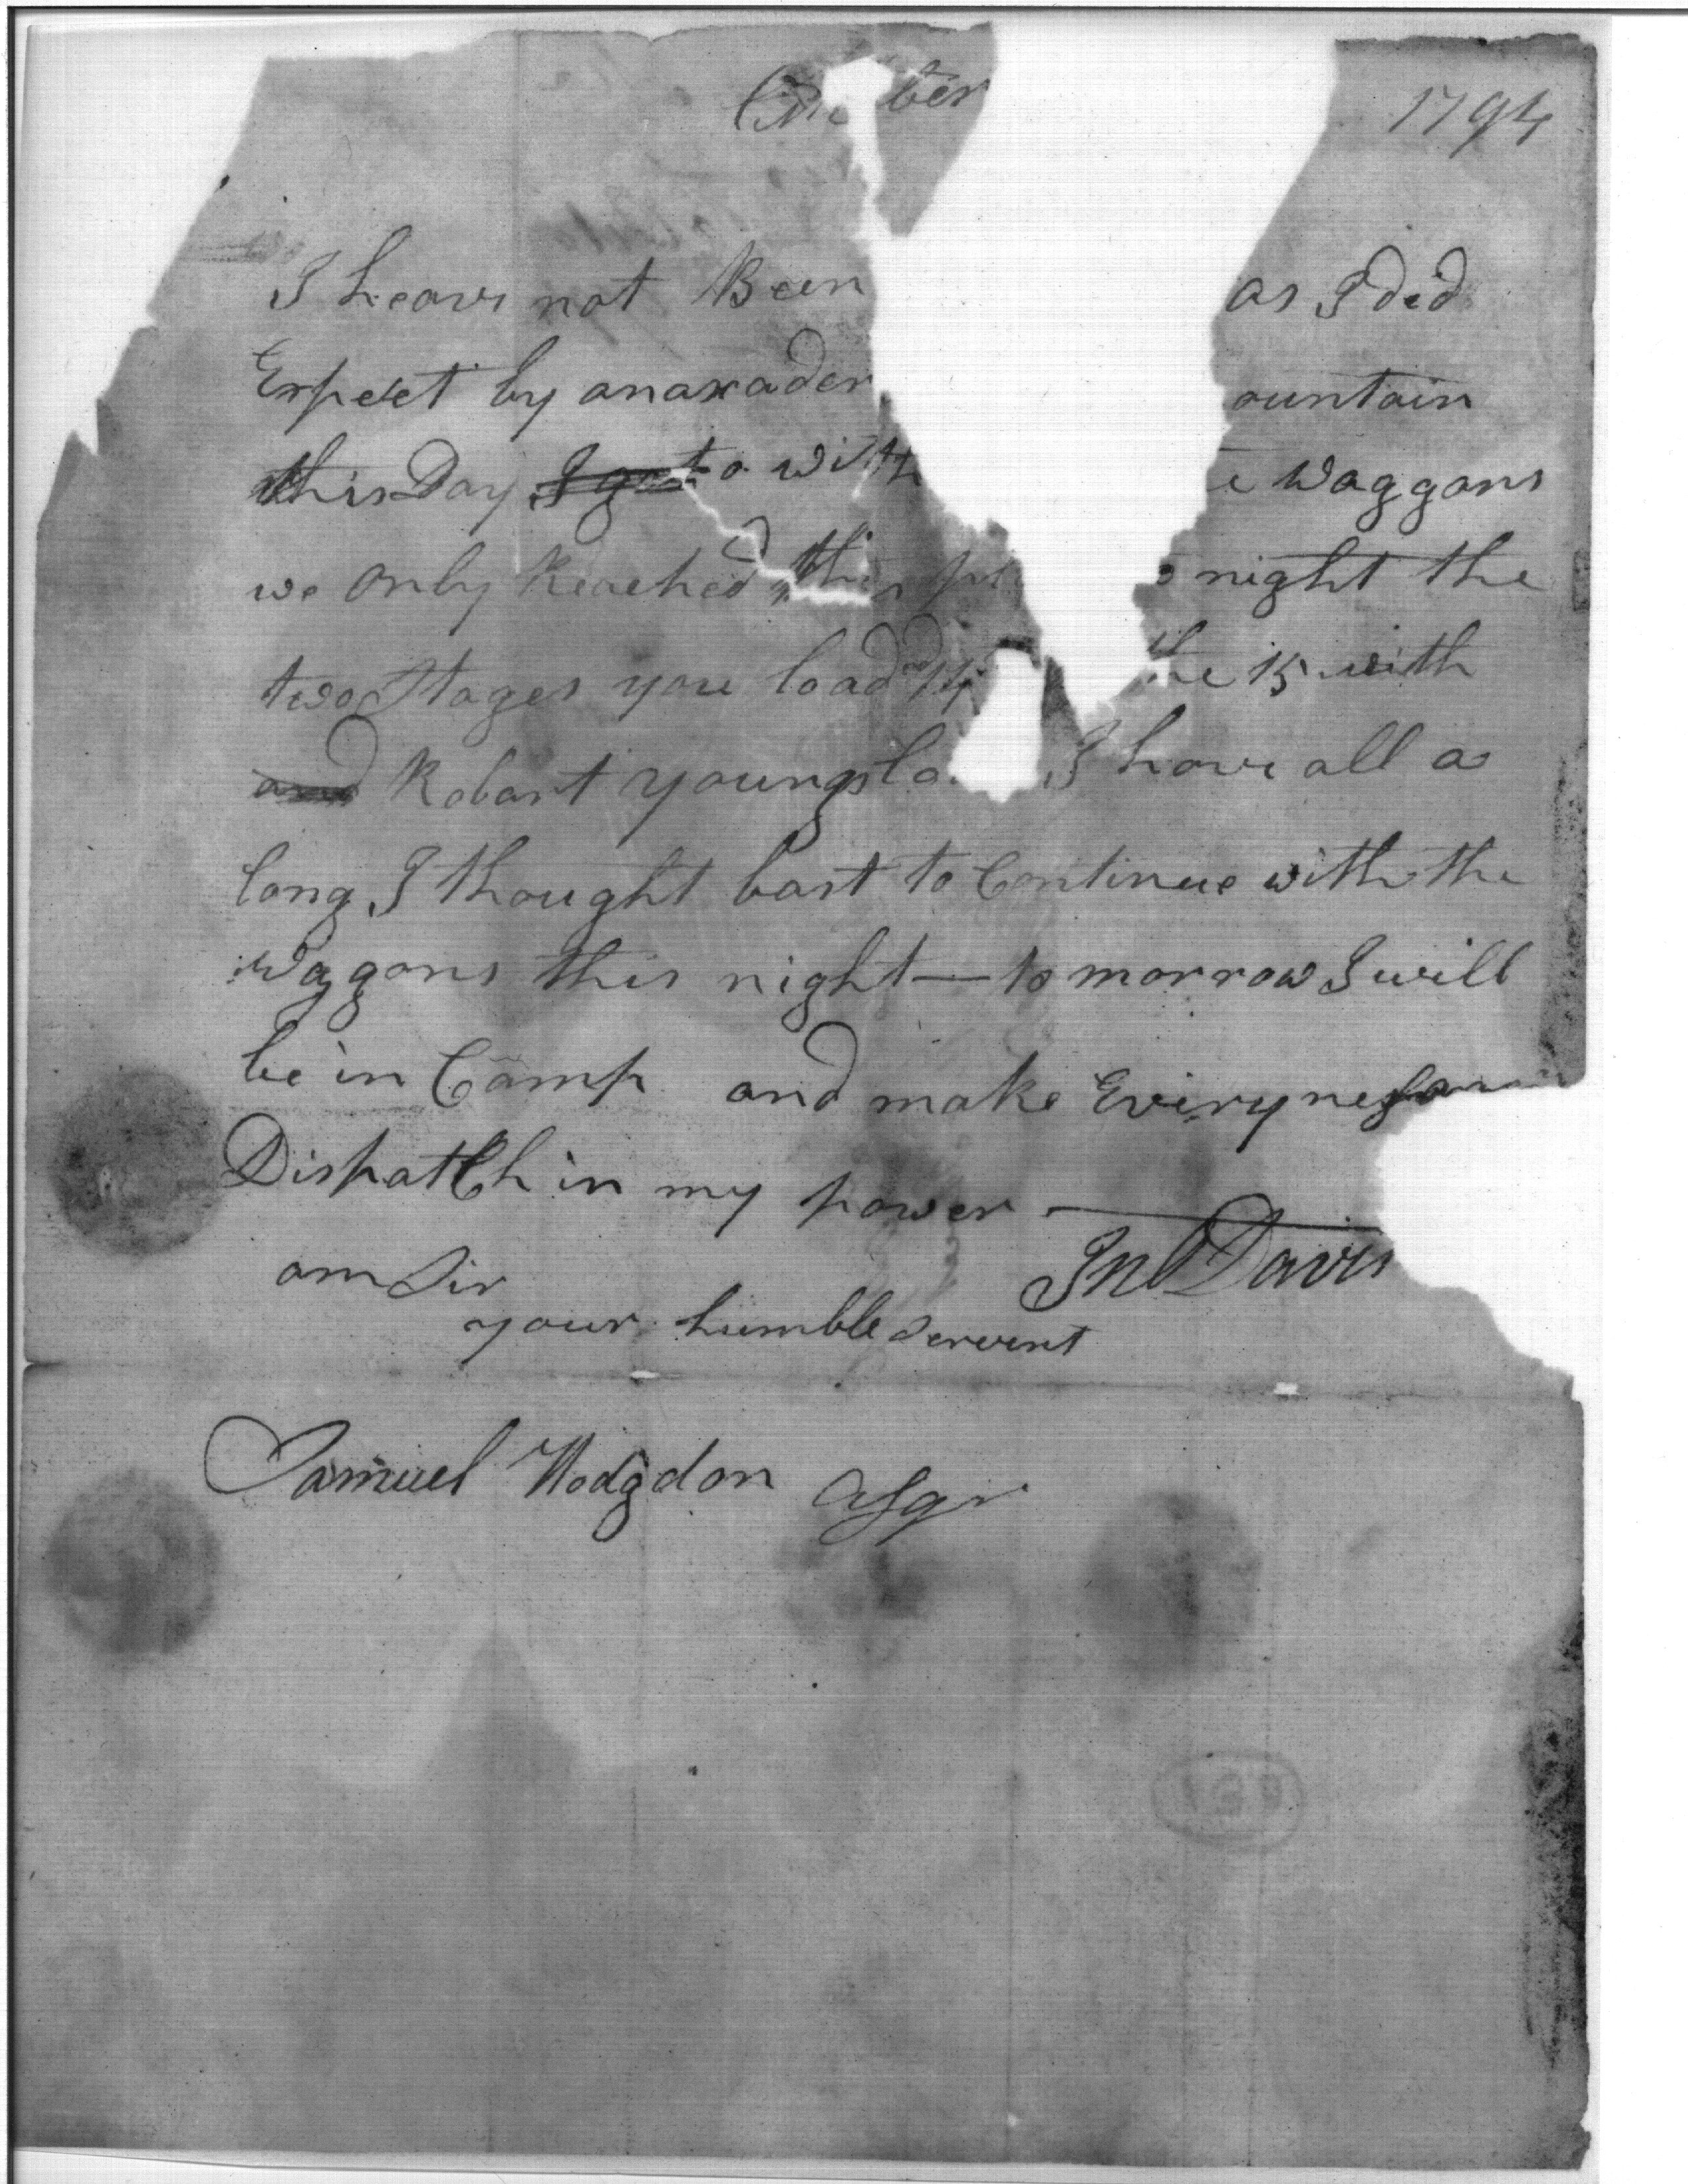 1794
I heave not Been as I did
Expect by anaxaden ountain
this Day to with Waggons
we only Reached this night the
two Stages you load 14 the 15 with
and Robart Youngs I have all a
long I thought bast to Continue with the
Waggons this night — to morrow I will
be in Camp and make Every
Dispatch in my power —
am Sir Jno Davis
your humble Servent
Samuel Hodgdon